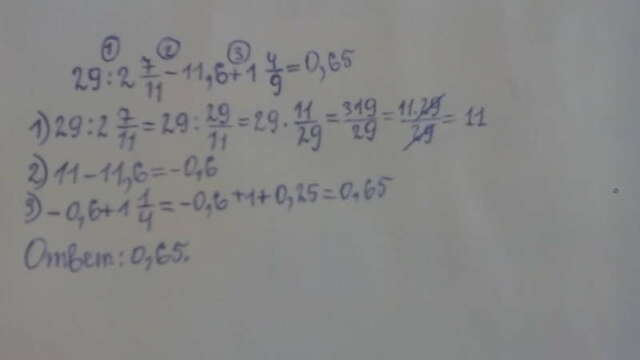 ① ② ③
29 : 2 7/11 - 11,6 + 1 4/9 = 0,65
1) 29 : 2 7/11 = 29 : 29/11 = 29 · 11/29 = 319/29 = 11·29/29 = 11
2) 11 - 11,6 = -0,6
3) -0,6 + 1 1/4 = -0,6 + 1 + 0,25 = 0,65
Ответ: 0,65.